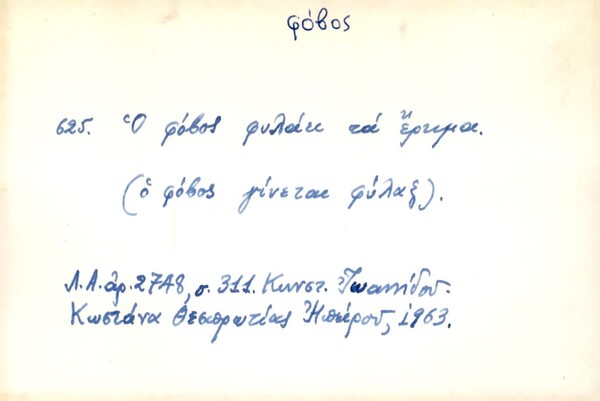 φόβος
625. Ὁ φόβος φυλάει τά ἔρημα.
(ὁ φόβος γίνεται φύλαξ).
Λ.Α. ἀρ. 2748, σ. 311. Κωνστ. Ἰωαννίδου.
Κωστάνα Θεσπρωτίας Ἠπείρου, 1963.